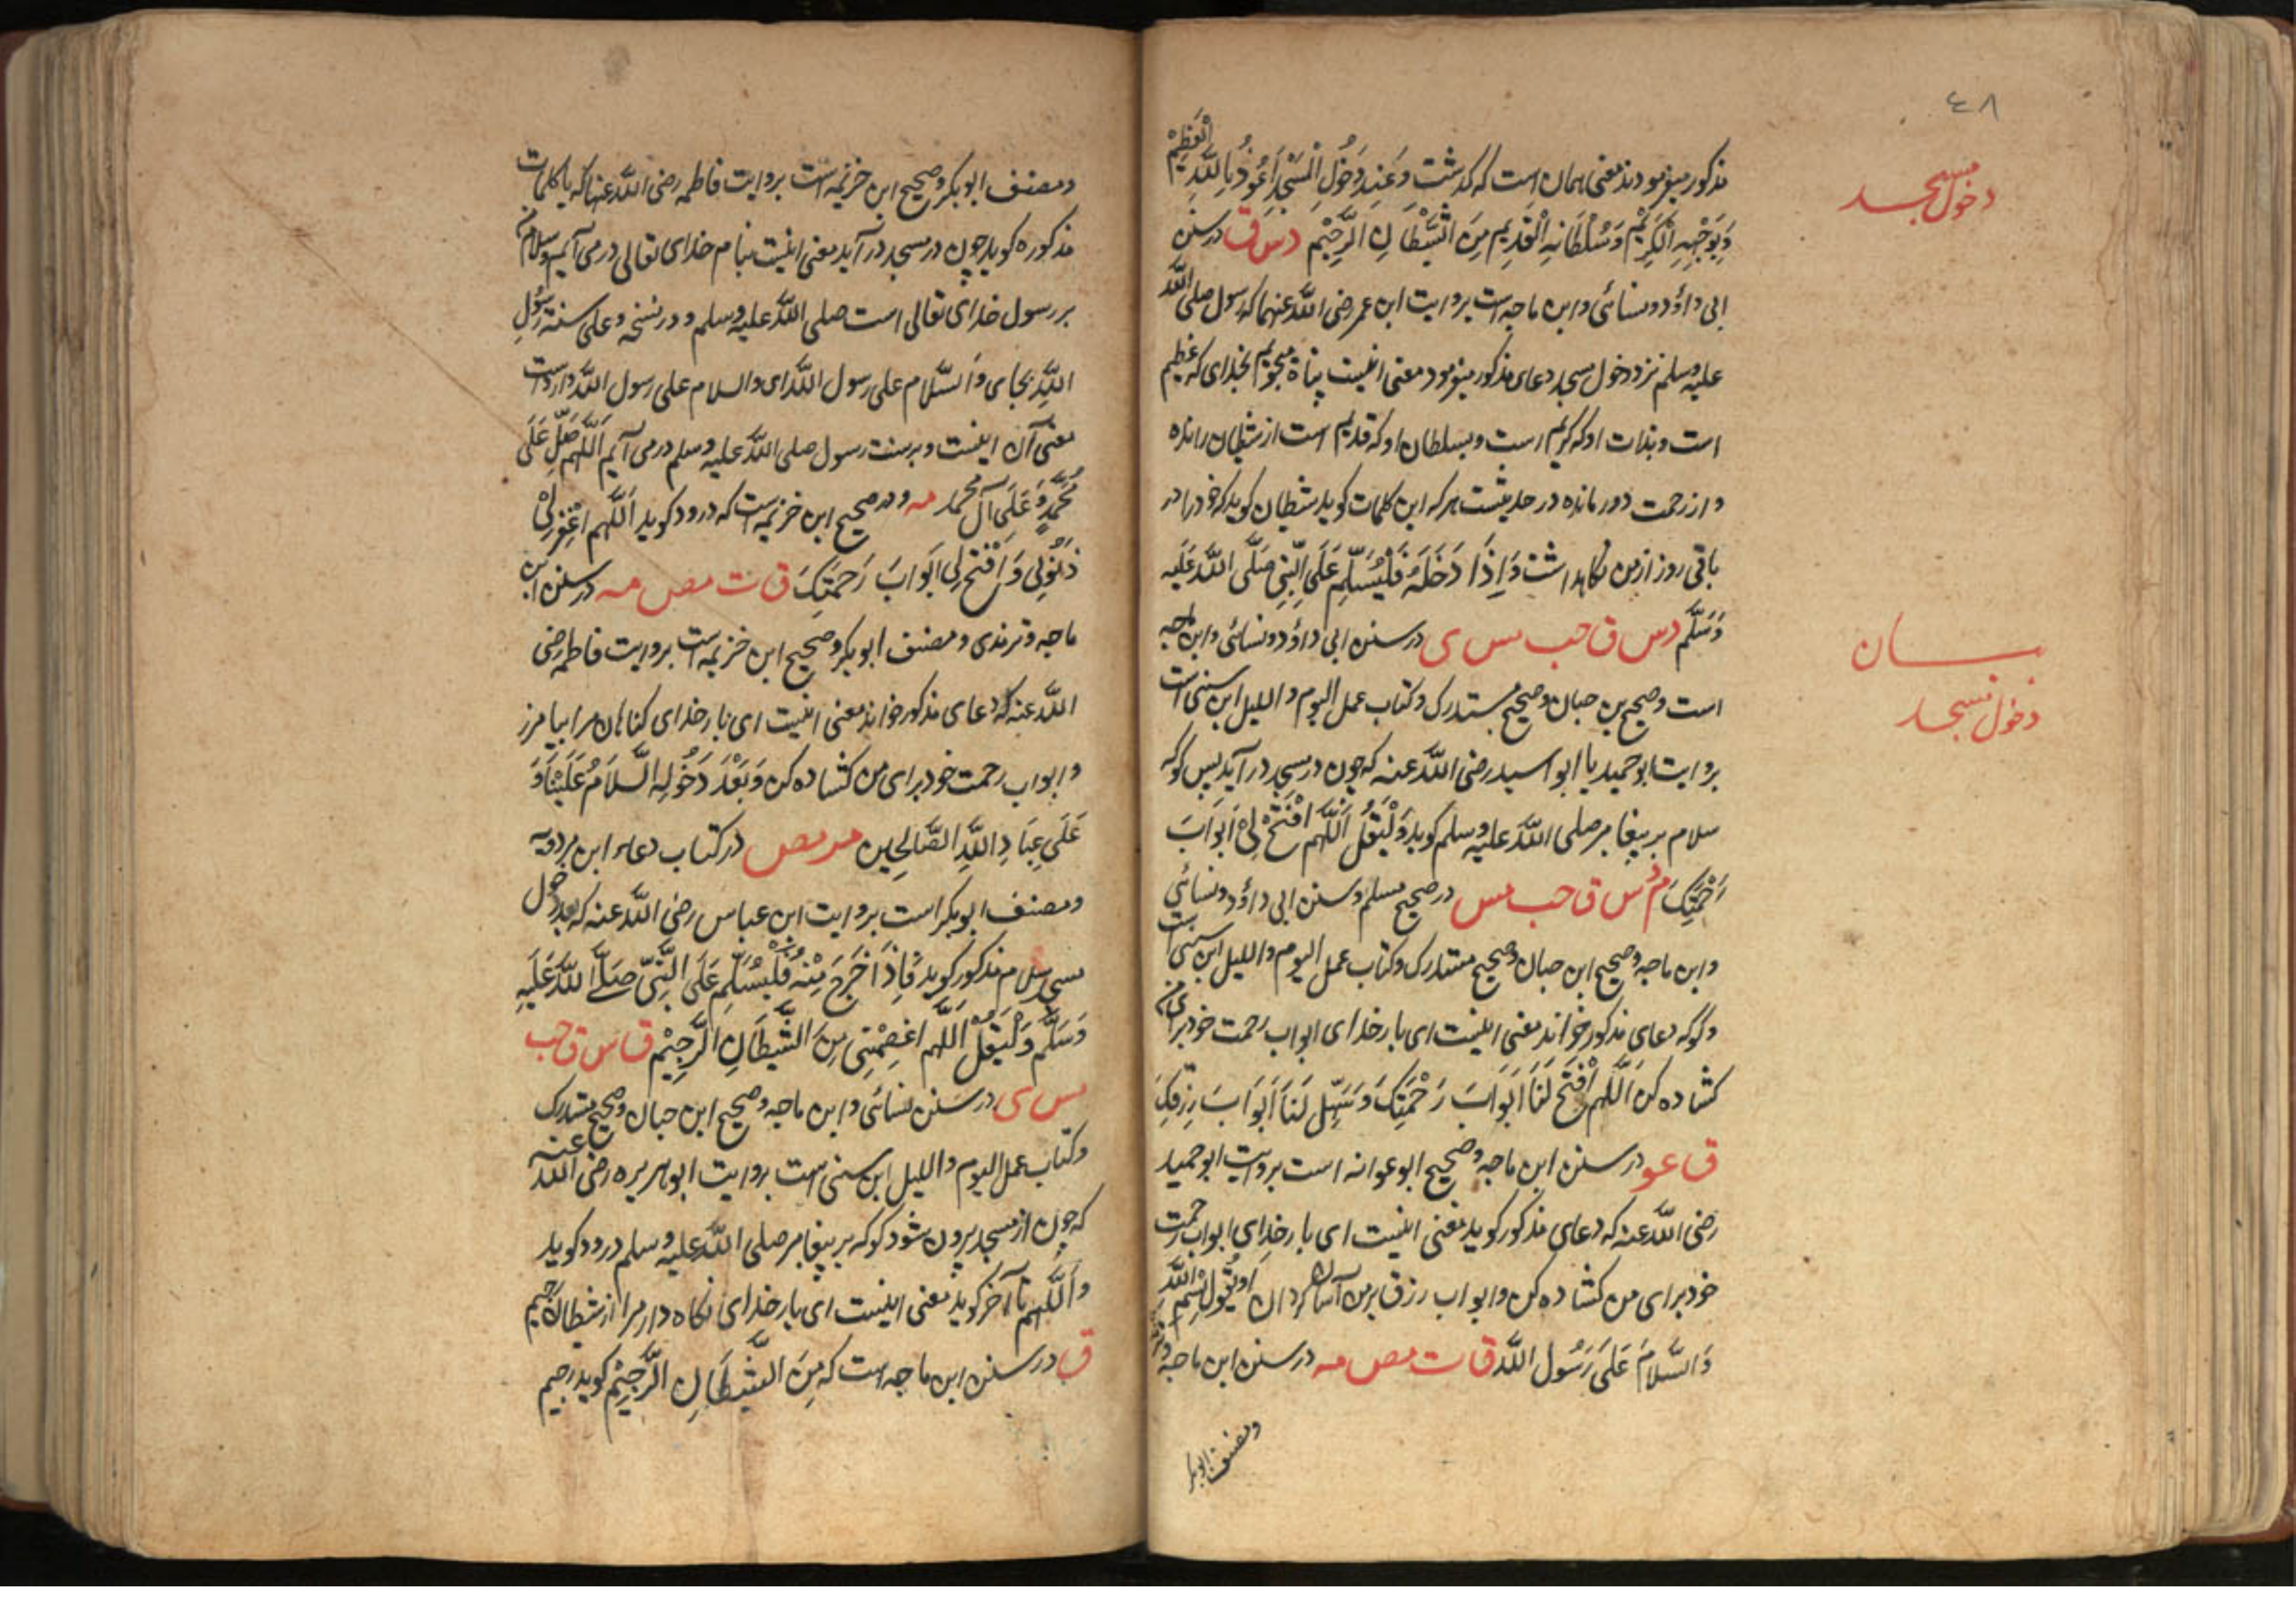 ٤٨
دخول مسجد
مذکور میفرمودند معنی همان است که گذشت وَعِنْدَ دُخُولِ الْمَسْجِدِ اَعُوذُ بِاللّٰهِ الْعَظِیْمِ
وَبِوَجْهِهِ الْکَرِیْمِ وَسُلْطَانِهِ الْقَدِیْمِ مِنَ الشَّیْطَانِ الرَّجِیْمِ دس ق در سنن
ابی داؤد و نسائی و ابن ماجه است بروایت ابن عمر رضی اللّٰه عنهما که رسول صلی اللّٰه
علیه وسلم نزد دخول مسجد دعای مذکور میفرمود معنی اینست پناه میجویم بخدای که عظیم
است و بذات او که کریم است و بسلطان او که قدیم است از شیطان رانده
و از رحمت دور مانده در حدیثست هر که این کلمات کوید شیطان کوید که خود را در
باقی روز از من نکاهداشت وَاِذَا دَخَلَهُ فَلْیُسَلِّمْ عَلَی النَّبِیِّ صَلَّی اللّٰهُ عَلَیْهِ
وَسَلَّمَ دس ق حب مس ی در سنن ابی داؤد و نسائی و ابن ماجه
بیان
دخول مسجد
است و صحیح بن حبان و صحیح مستدرک و کتاب عمل الیوم و اللیل ابن سنی است
بروایت ابو حمید یا ابو اسید رضی اللّٰه عنه که چون در مسجد در آید پس کو که
سلام بر پیغامبر صلی اللّٰه علیه وسلم کوید وَلْیَقُلْ اَللّٰهُمَّ افْتَحْ لِیْ اَبْوَابَ
رَحْمَتِکَ م دس ق حب مس در صحیح مسلم و سنن ابی داؤد و نسائی
و ابن ماجه و صحیح ابن حبان و صحیح مستدرک و کتاب عمل الیوم و اللیل ابن سنی است
و کو که دعای مذکور خواند معنی اینست ای بار خدای ابواب رحمت خود برای من
کشاده کن اَللّٰهُمَّ افْتَحْ لَنَا اَبْوَابَ رَحْمَتِکَ وَسَهِّلْ لَنَا اَبْوَابَ رِزْقِکَ
ق عو در سنن ابن ماجه و صحیح ابو عوانه است بروایت ابو حمید
رضی اللّٰه عنه که دعای مذکور کوید معنی اینست ای بار خدای ابواب رحمت
خود برای من کشاده کن و ابواب رزق بر من آسان کردان اَوْ یَقُوْلُ بِسْمِ اللّٰهِ
وَالسَّلَامُ عَلَی رَسُوْلِ اللّٰهِ ق ت مص مه در سنن ابن ماجه و ترمذی
و مصنف ابوبکر
و مصنف ابو بکر و صحیح ابن خزیمه است بروایت فاطمه رضی اللّٰه عنها که با کلمات
مذکوره کوید چون در مسجد در آید معنی اینست بنام خدای تعالی درمی آییم و سلام
بر رسول خدای تعالی است صلی اللّٰه علیه وسلم و در نسخه وعلی سنة رسول
اللّٰه بجای والسّلام علی رسول اللّٰه ای والسلام علی رسول اللّٰه وارد است
معنی آن اینست و بر سنت رسول صلی اللّٰه علیه وسلم درمی آییم اَللّٰهُمَّ صَلِّ عَلَی
مُحَمَّدٍ وَّعَلَی آلِ مُحَمَّد مه و در صحیح ابن خزیمه است که درود کوید اَللّٰهُمَّ اغْفِرْ لِیْ
ذُنُوْبِی وَافْتَحْ لِی اَبْوَابَ رَحْمَتِکَ ق ت مص مه در سنن ابن
ماجه و ترمذی و مصنف ابو بکر و صحیح ابن خزیمه است بروایت فاطمه رضی
اللّٰه عنه که دعای مذکور خواند معنی اینست ای بار خدای کناهان مرا بیامرز
و ابواب رحمت خود برای من کشاده کن وَبَعْدَ دُخُوْلِهِ السَّلَامُ عَلَیْنَا وَ
عَلَی عِبَادِ اللّٰهِ الصَّالِحِیْنَ مر مص در کتاب دعاء ابن مردویه
و مصنف ابو بکر است بروایت ابن عباس رضی اللّٰه عنه که بعد دخول
مسجد سلام مذکور کوید فَاِذَا خَرَجَ مِنْهُ فَلْیُسَلِّمْ عَلَی النَّبِیِّ صَلَّی اللّٰهُ عَلَیْهِ
وَسَلَّمَ وَلْیَقُلْ اَللّٰهُمَّ اعْصِمْنِی مِنَ الشَّیْطَانِ الرَّجِیْمِ ق س ق حب
مس ی در سنن نسائی و ابن ماجه و صحیح ابن حبان و صحیح مستدرک
و کتاب عمل الیوم و اللیل ابن سنی است بروایت ابو هریره رضی اللّٰه عنه
که چون از مسجد بیرون شود کو که بر پیغامبر صلی اللّٰه علیه وسلم درود کوید
و اَللّٰهُمَّ تا آخر کوید معنی اینست ای بار خدای نکاه دار مرا از شیطان رجیم
ق در سنن ابن ماجه است که مِنَ الشَّیْطَانِ الرَّجِیْمِ کوید رجیم